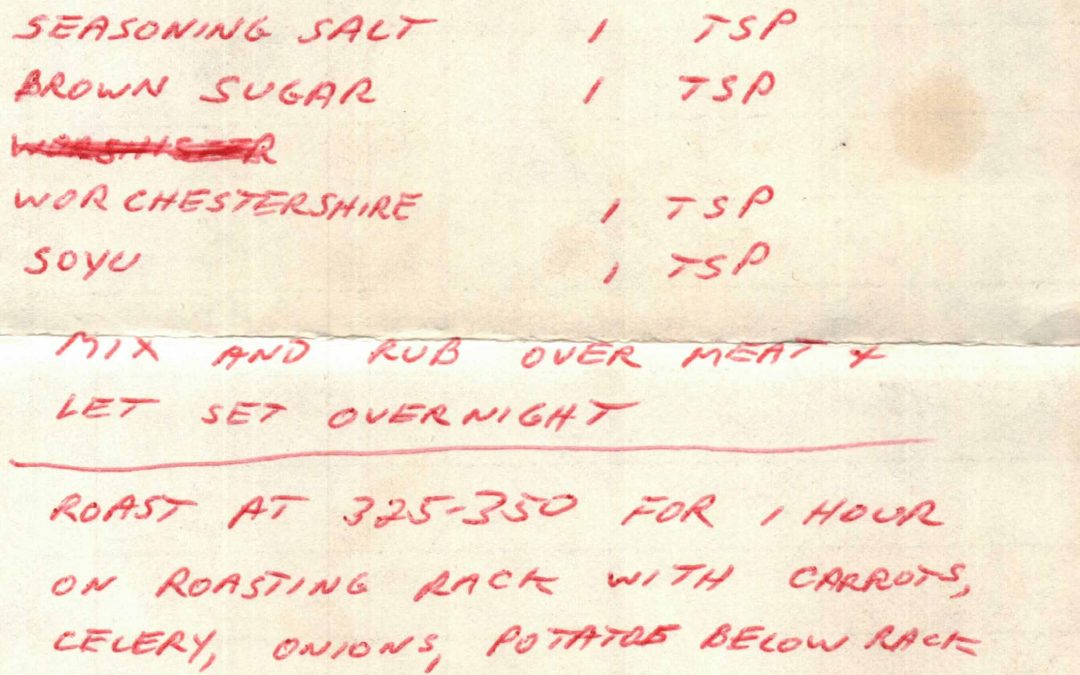 SEASONING SALT 1 TSP
BROWN SUGAR 1 TSP
WORCHESTERSHIRE 1 TSP
SOYU 1 TSP
MIX AND RUB OVER MEAT &
LET SET OVERNIGHT
ROAST AT 325-350 FOR 1 HOUR
ON ROASTING RACK WITH CARROTS,
CELERY, ONIONS, POTATOE BELOW RACK